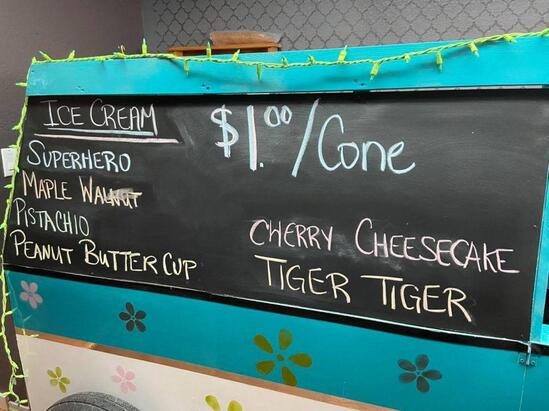 ICE CREAM
$1.00/Cone
SUPERHERO
MAPLE WALNUT
PISTACHIO
PEANUT BUTTER CUP
CHERRY CHEESECAKE
TIGER TIGER